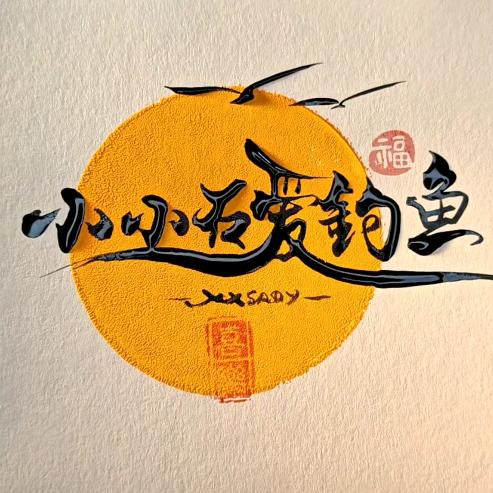 福
小小石爱钓鱼
XXSADY
喜